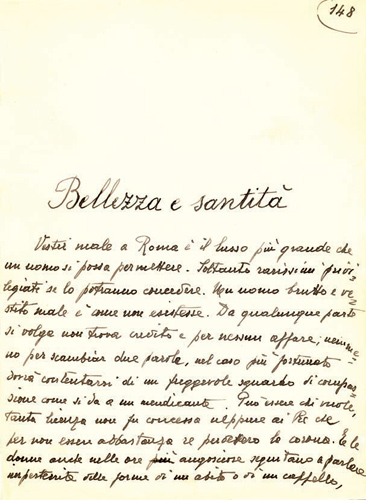 148
Bellezza e santità
Vestir male a Roma è il lusso più grande che
un uomo si possa permettere. Soltanto rarissimi privi=
legiati se lo potranno concedere. Un uomo brutto e ve=
stito male è come non esistesse. Da qualunque parte
si volga non trova credito e per nessun affare; nemme=
no per scambiar due parole, nel caso più fortunato
dovrà contentarsi di un fuggevole sguardo di compas=
sione come si dà a un mendicante. Può essere che vuole,
tanta licenza non fu concessa neppure ai Re che
per non essere abbastanza re perdettero la corona. E le
donne anche nelle ore più angosciose seguitano a parlare
imperterrite delle forme di un abito o di un cappello,